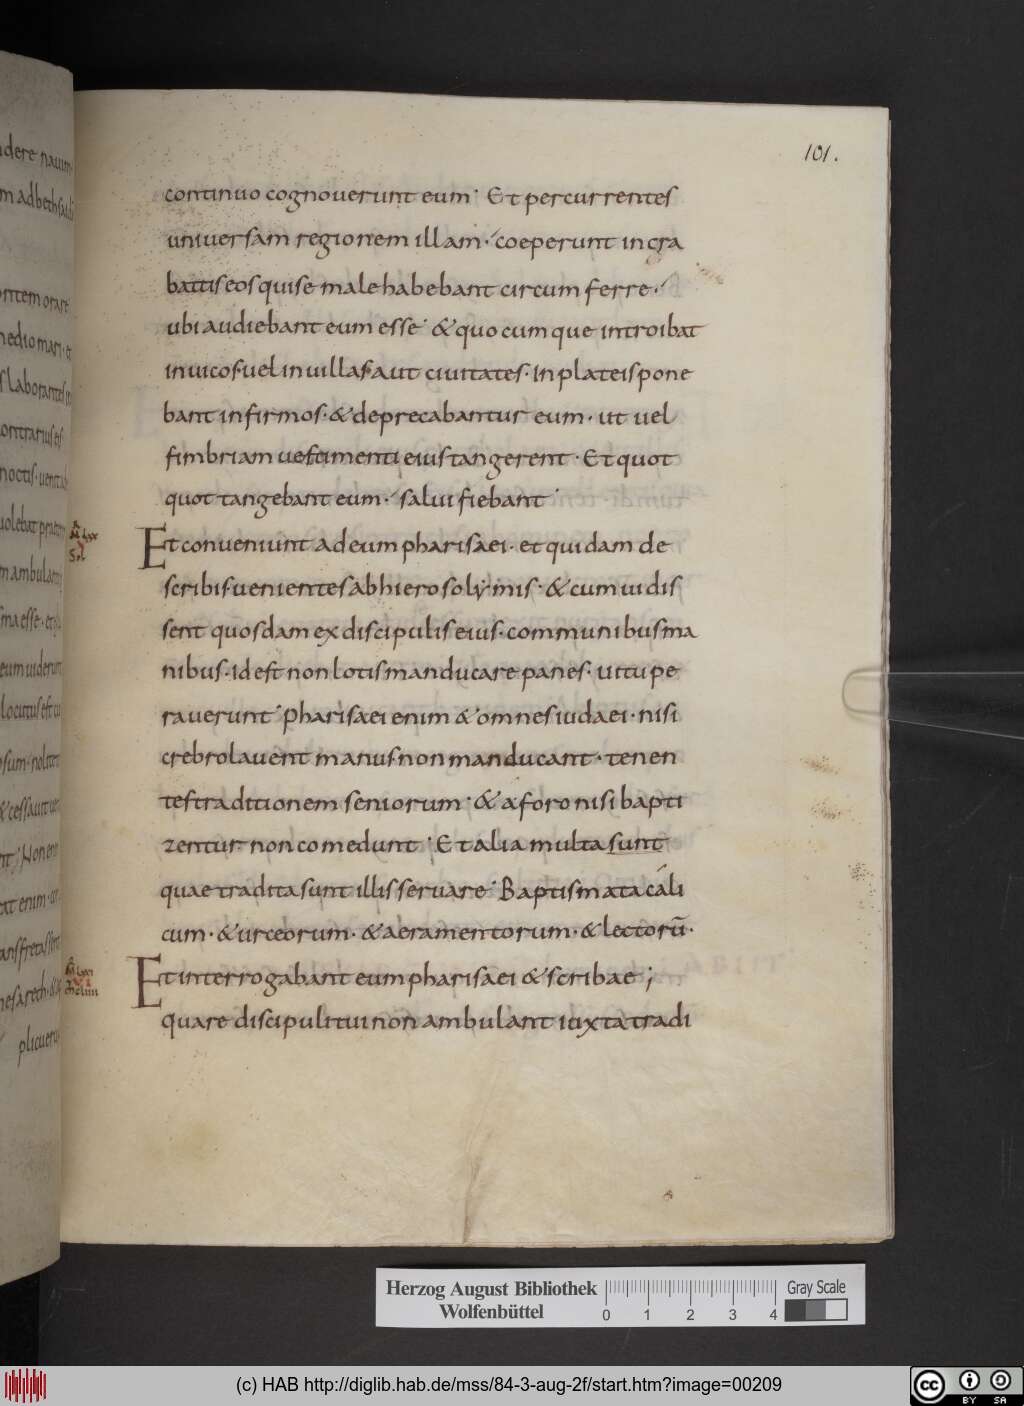 101.
continuo cognouerunt eum· Et percurrentes
uniuersam regionem illam· coeperunt in gra
battis eos qui se male habebant circum ferre·
ubi audiebant eum esse· & quo cum que introibat
in uicos uel in uillas aut ciuitates· In plateis pone
bant infirmos· & deprecabantur eum· ut uel
fimbriam uestimenti eius tangerent· Et quot
quot tangebant eum· salui fiebant·
Et conueniunt ad eum pharisaei· et quidam de
scribis uenientes ab hierosolẏmis· & cum uidis
sent quosdam ex discipulis eius· communibus ma
nibus· id est non lotis manducare panes· uitupe
rauerunt· Pharisaei enim & omnes iudaei· nisi
crebro lauent manus non manducant· tenen
tes traditionem seniorum· & a foro nisi bapti
zentur non comedunt· Et alia multa sunt
quae tradita sunt illis seruare· Baptismata cali
cum· & urceorum· & aeramentorum· & lectorū·
Et interrogabant eum pharisaei & scribae;
quare discipuli tui non ambulant iuxta tradi
Herzog August Bibliothek
Wolfenbüttel
0 1 2 3 4
Gray Scale
(c) HAB http://diglib.hab.de/mss/84-3-aug-2f/start.htm?image=00209
cc BY SA